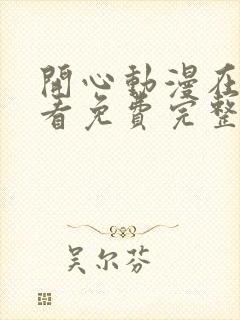 開心動漫在
看免費完整
吴尔芬